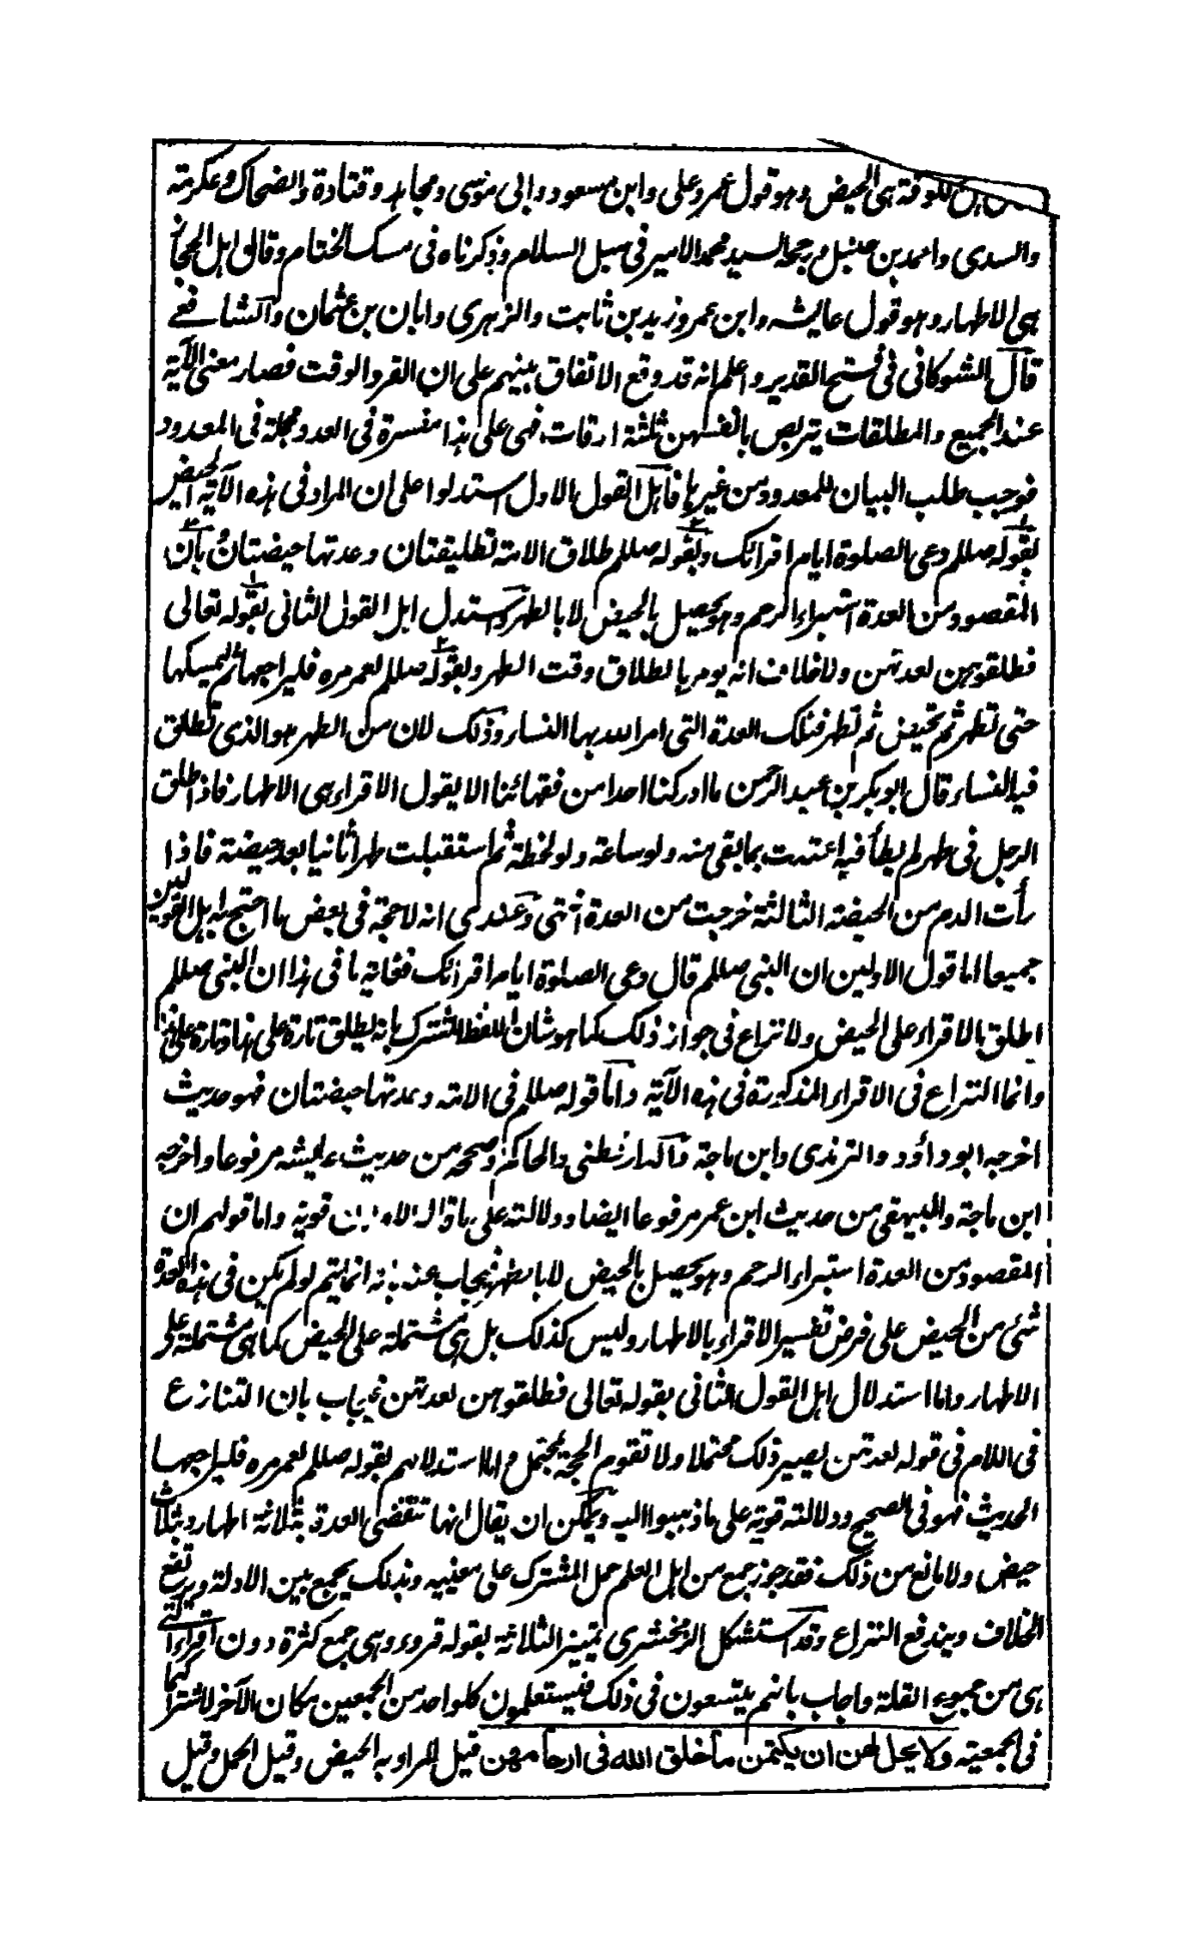 اهل الكوفة هى الحيض وهو قول عمر وعلى وابن مسعود وابى موسى ومجاهد وقتادة والضحاك وعكرمة
والسدى واحمد بن حنبل ورجحه السيد محمد الامير فى سبل السلام وذكرناه فى مسك الختام وقال اهل الحجاز
هى الاطهار وهو قول عايشه وابن عمر وزيد بن ثابت والزهرى وابان بن عثمان والشافعى
قال الشوكانى فى فتح القدير واعلم انه قد وقع الاتفاق بينهم على ان القرء الوقت فصار معنى الآية
عند الجميع والمطلقات يتربصن بانفسهن ثلثة اوقات فهى على هذا مفسرة فى العدد مجملة فى المعدود
فوجب طلب البيان للمعدود من غيرها فاهل القول الاول استدلوا على ان المراد فى هذه الآية الحيض
بقوله صللم دعى الصلوة ايام اقرائك وبقوله صللم طلاق الامة تطليقتان وعدتها حيضتان وبان
المقصود من العدة استبراء الرحم وهو يحصل بالحيض لا بالطهر واستدل اهل القول الثانى بقوله تعالى
فطلقوهن لعدتهن ولا خلاف انه يومر بالطلاق وقت الطهر وبقوله صللم لعمر مره فليراجعها ثم ليمسكها
حتى تطهر ثم تحيض ثم تطهر فتلك العدة التى امر الله بها النساء وذلك لان من الطهر هو الذى تطلق
فيه النساء قال ابو بكر بن عبد الرحمن ما ادركنا احدا من فقهائنا الا يقول الاقراء هى الاطهار فاذا طلق
الرجل فى طهر لم يطأ فيه اعتدت بما بقى منه ولو ساعة ولو لحظة ثم استقبلت طهرا ثانيا بعد حيضة فاذا
رأت الدم من الحيضة الثالثة خرجت من العدة انتهى وعندى انه لا حجة فى بعض ما احتج به اهل القولين
جميعا اما قول الاولين ان النبى صللم قال دعى الصلوة ايام اقرائك فغاية ما فى هذا ان النبى صللم
اطلق الاقراء على الحيض ولا نزاع فى جواز ذلك كما هو شان اللفظ المشترك بانه يطلق تارة على هذا وتارة على هذا
وانما النزاع فى الاقراء المذكورة فى هذه الآية واما قوله صللم فى الامة وعدتها حيضتان فهو حديث
اخرجه ابو داؤد والترمذى وابن ماجة والدارقطنى والحاكم وصححه من حديث عايشه مرفوعا واخرجه
ابن ماجة والبيهقى من حديث ابن عمر مرفوعا ايضا ودلالته على ما قاله الاولون قوية واما قولهم ان
المقصود من العدة استبراء الرحم وهو يحصل بالحيض لا بالطهر فيجاب عنه بانه انما يتم لو لم يكن فى هذه العدة
شئ من الحيض على فرض تفسير الاقراء بالاطهار وليس كذلك بل هى مشتملة على الحيض كما هى مشتملة على
الاطهار واما استدلال اهل القول الثانى بقوله تعالى فطلقوهن لعدتهن فيجاب بان التنازع
فى اللام فى قوله لعدتهن يصير ذلك محتملا ولا تقوم الحجة بمحتمل واما استدلالهم بقوله صللم لعمر مره فليراجعها
الحديث فهو فى الصحيح ودلالته قوية على ما ذهبوا اليه ويمكن ان يقال انها تنقضى العدة بثلاثة اطهار وبثلاث
حيض ولا مانع من ذلك فقد جوز جمع من اهل العلم حمل المشترك على معنييه وبذلك يجمع بين الادلة ويرتفع
الخلاف ويندفع النزاع وقد استشكل الزمخشرى تمييز الثلاثة بقوله قروء وهى جمع كثرة دون اقراء التى
هى من جموع القلة واجاب بانهم يتسعون فى ذلك فيستعملون كلواحد من الجمعين مكان الآخر لاشتراكهما
فى الجمعية ولا يحل لهن ان يكتمن ما خلق الله فى ارحامهن قيل المراد به الحيض وقيل الحمل وقيل